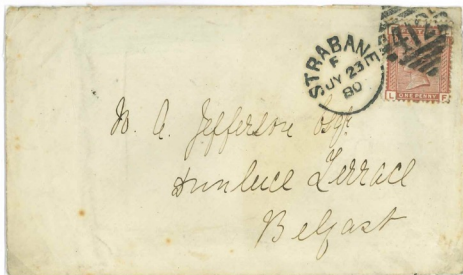 STRABANE
F
JY 23
80
ONE PENNY
L F
W. A. Jefferson Esqr.
Dunluce Terrace
Belfast